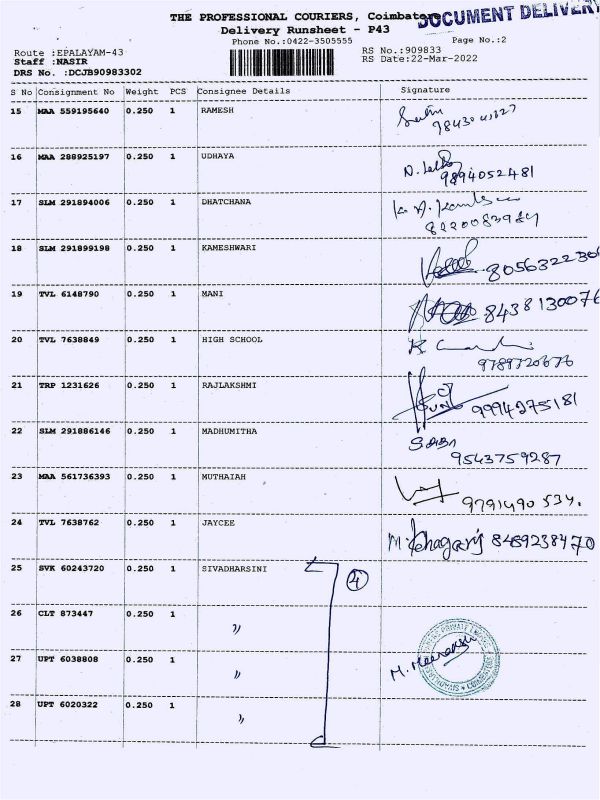 THE PROFESSIONAL COURIERS, Coimbatore
DOCUMENT DELIVERY
Delivery Runsheet - P43
Phone No.:0422-3505555 Page No.:2
Route :EPALAYAM-43 RS No.:909833
Staff :NASIR RS Date:22-Mar-2022
DRS No. :DCJB90983302
S No Consignment No Weight PCS Consignee Details Signature
15 MAA 559195640 0.250 1 RAMESH
16 MAA 288925197 0.250 1 UDHAYA
9894052481
17 SLM 291894006 0.250 1 DHATCHANA
18 SLM 291899198 0.250 1 KAMESHWARI
805632230
19 TVL 6148790 0.250 1 MANI
8438130076
20 TVL 7638849 0.250 1 HIGH SCHOOL
9789720676
21 TRP 1231626 0.250 1 RAJLAKSHMI
9994275181
22 SLM 291886146 0.250 1 MADHUMITHA
9543759287
23 MAA 561736393 0.250 1 MUTHAIAH
9791490534.
24 TVL 7638762 0.250 1 JAYCEE
8489238470
25 SVK 60243720 0.250 1 SIVADHARSINI
4
26 CLT 873447 0.250 1 "
27 UPT 6038808 0.250 1 "
M. Meenakshi
28 UPT 6020322 0.250 1 "